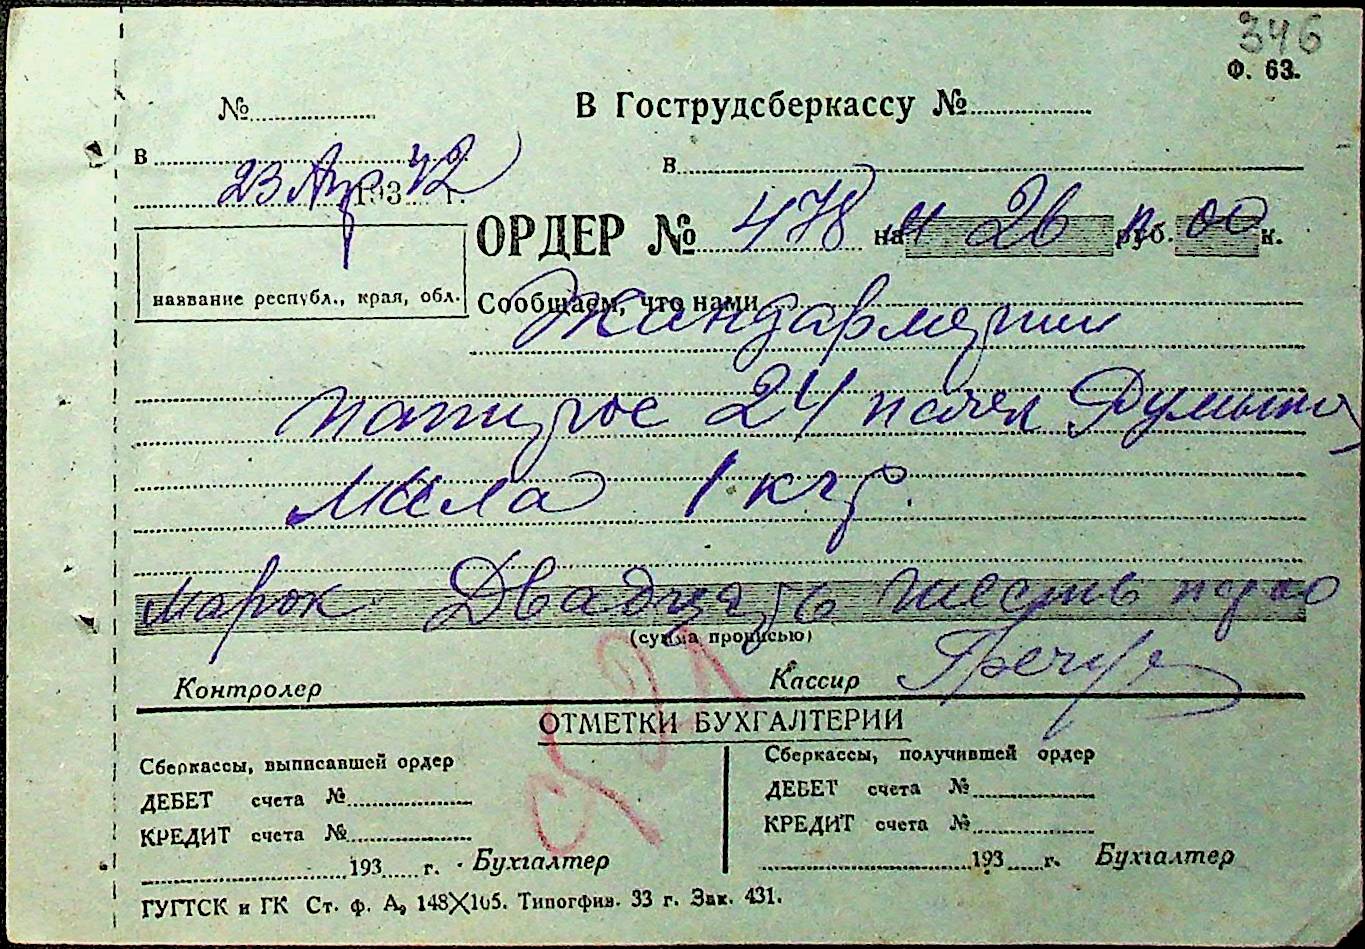 346
Ф. 63.
№ В Гострудсберкассу №
в в
23 Апр 193 42 г.
ОРДЕР № 478 на М 26 руб. п. 00 к.
название республ., края, обл. Сообщаем, что нами
Жандармерии
папирос 24 пачек Румын
Мыла 1 кгр.
марок Двадцать шесть п 00
(сумма прописью)
Контролер Кассир
ОТМЕТКИ БУХГАЛТЕРИИ
Сберкассы, выписавшей ордер Сберкассы, получившей ордер
ДЕБЕТ счета № ДЕБЕТ счета №
КРЕДИТ счета № КРЕДИТ счета №
193 г. Бухгалтер 193 г. Бухгалтер
ГУГТСК и ГК Ст. ф. А, 148X105. Типогфив. 33 г. Зак. 431.